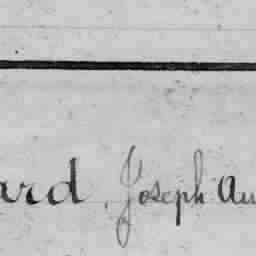 ard, Joseph Au